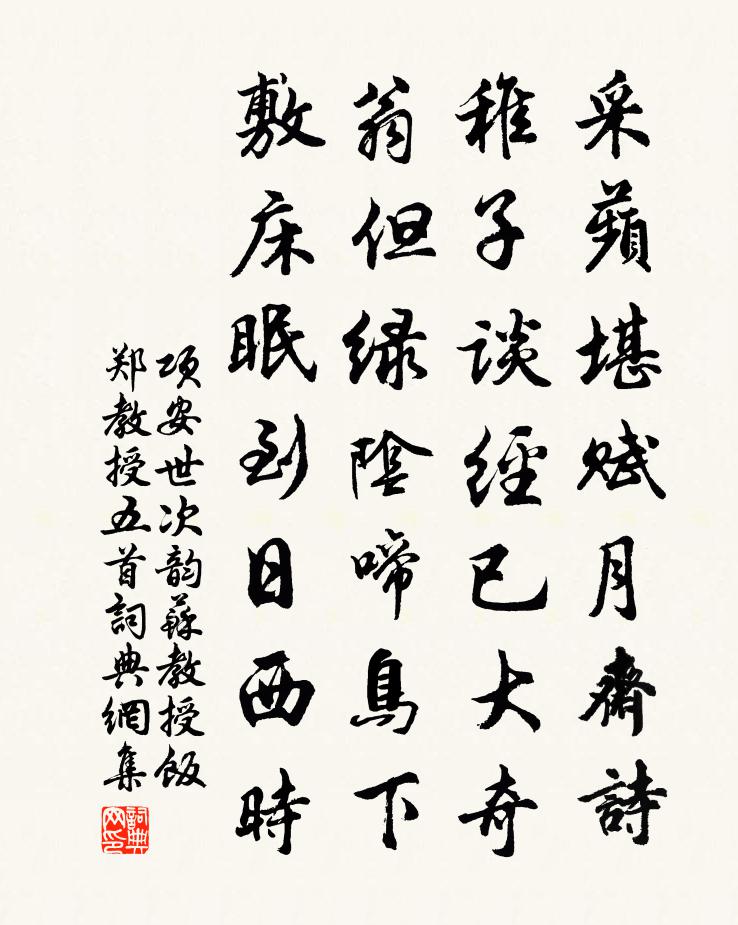 采蘋堪賦月齋詩
稚子談經已大奇
翁但緑陰啼鳥下
敷床眠到日西時
项安世次韵蘇教授飯
郑教授五首詞典網集
詞典
网印